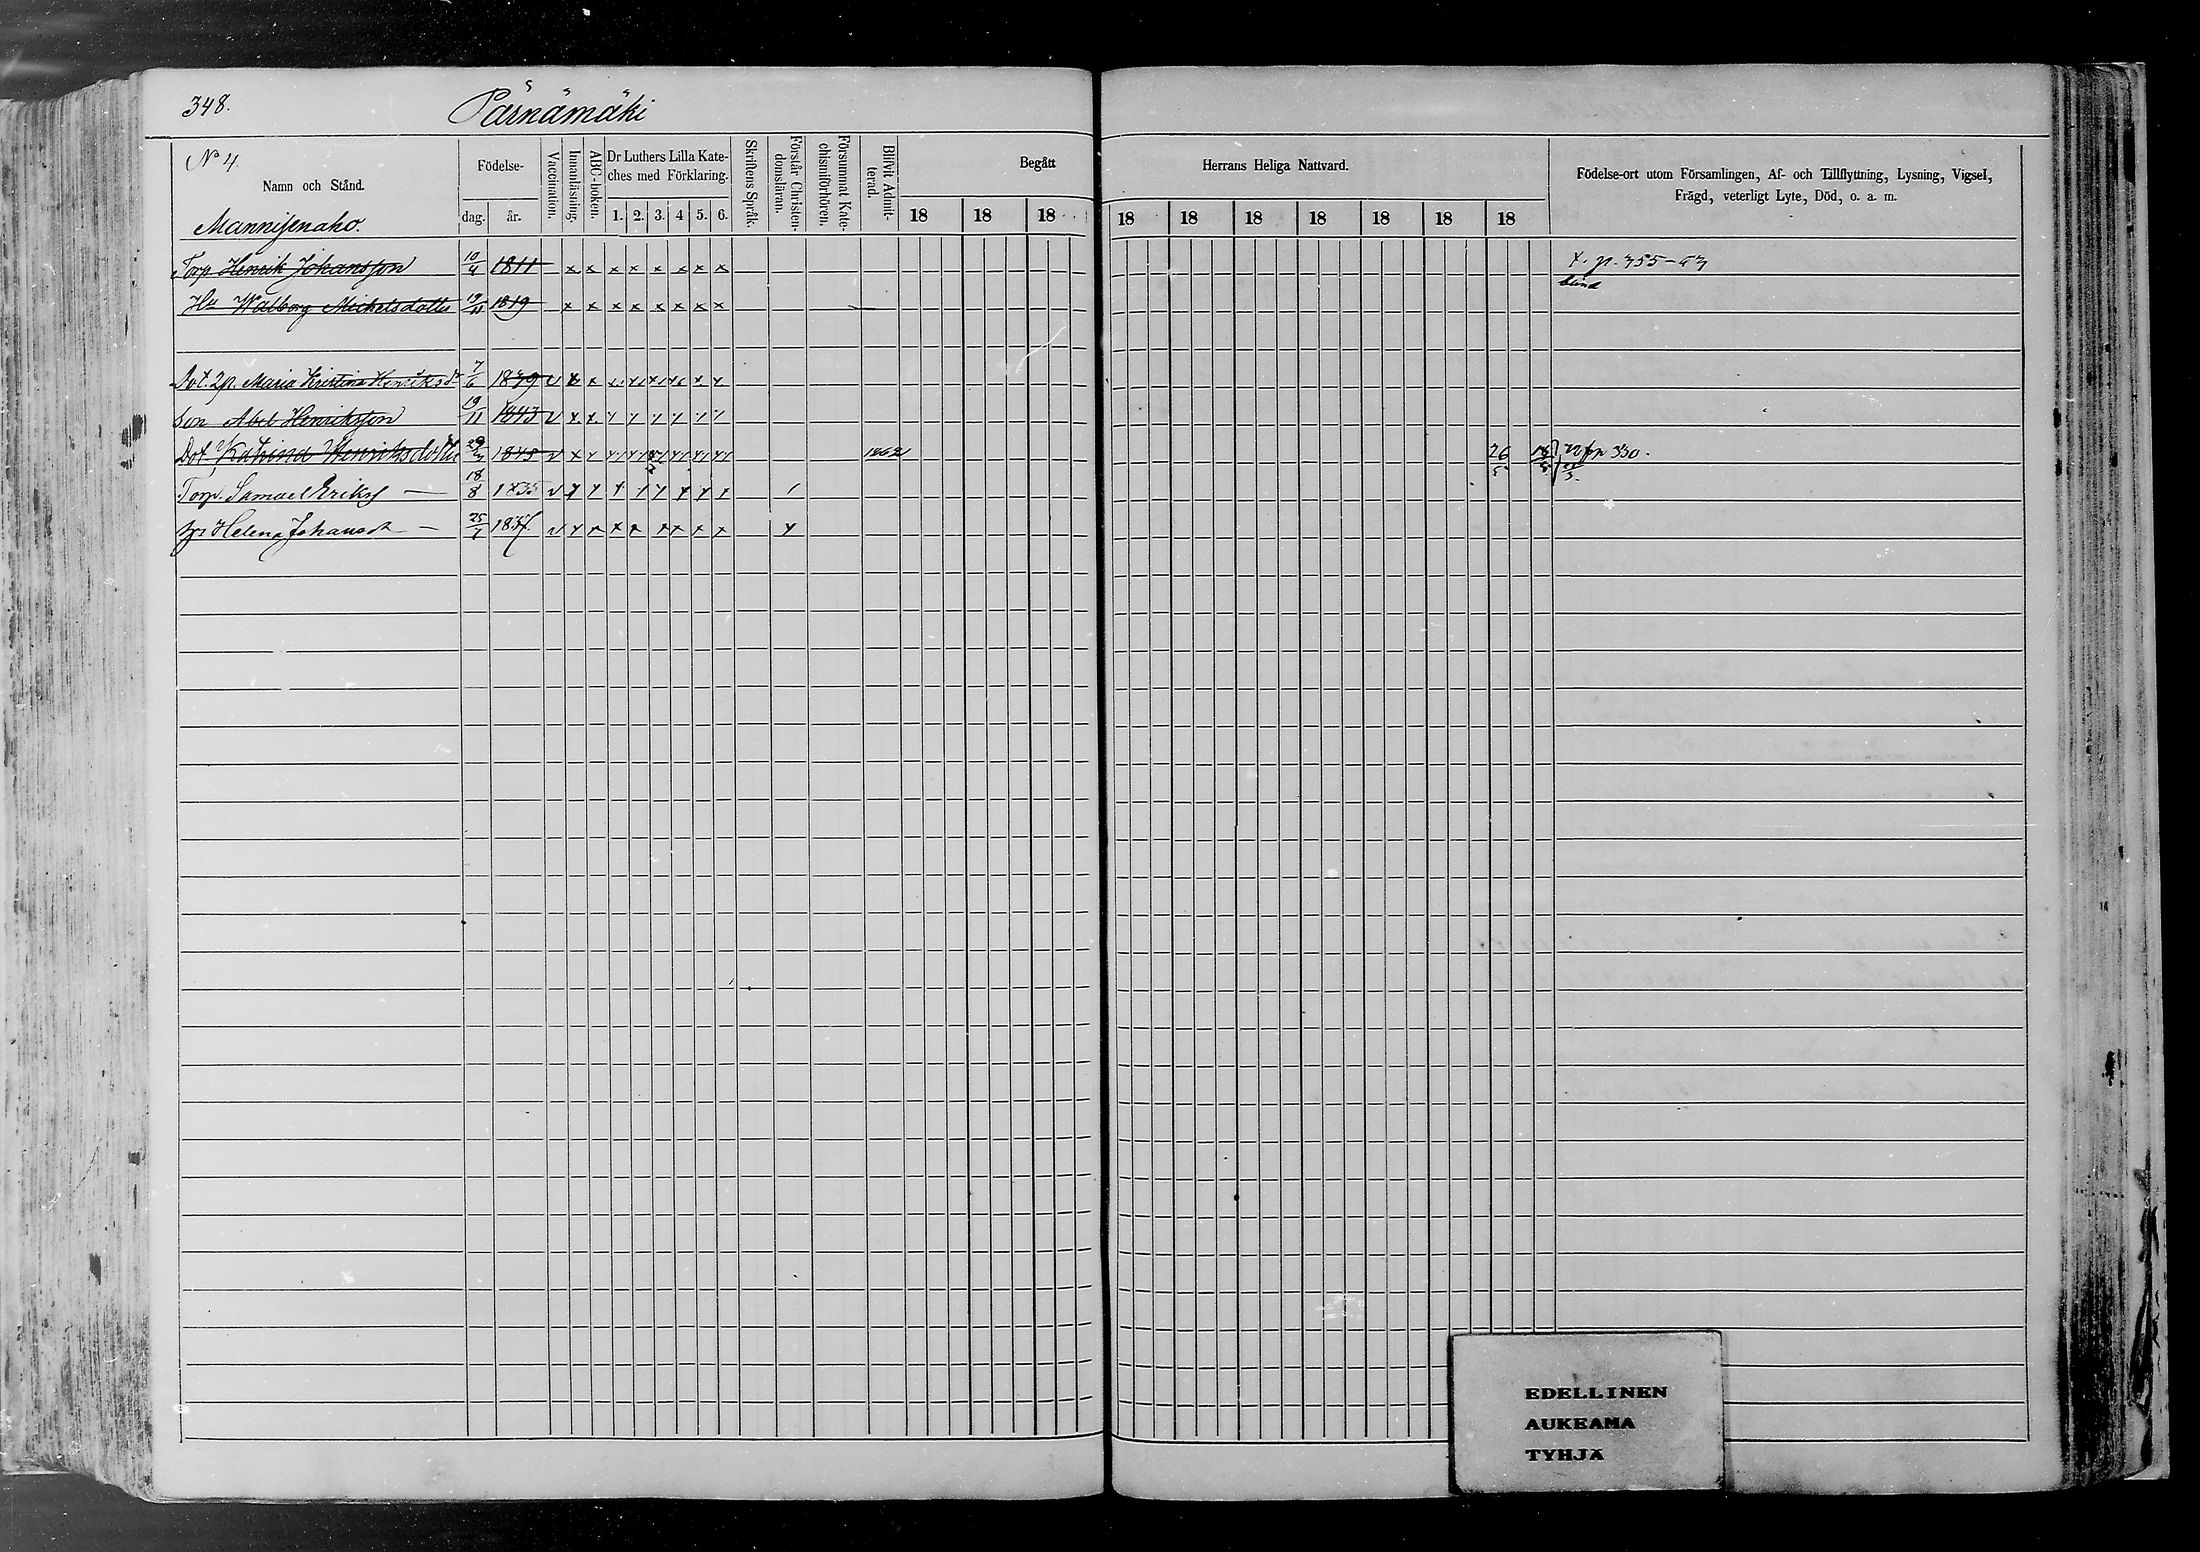 348. Pärnämäki
No 4
Namn och Stånd.
Födelse-
dag. år.
Vaccination.
Innanläsning.
ABC-boken.
Dr Luthers Lilla Kate-
ches med Förklaring.
1. 2. 3. 4 5. 6.
Skriftens Språk.
Förstår Christen-
domsläran.
Försummat Kate-
chismiförhören.
Blifvit Admit-
terad.
Begått Herrans Heliga Nattvard.
18 18 18 18 18 18 18 18 18 18
Födelse-ort utom Församlingen, Af- och Tillflyttning, Lysning, Vigsel,
Frägd, veterligt Lyte, Död, o. a. m.
Mannisenaho.
Torp Henrik Johansson 10/4 1811 x x x x x x x x t. p. 355-63
Hu Walborg Michelsdotter 19/11 1819 x x x x x x x x blind
Dot. 2p. Maria Kristina Henriksdr 7/6 1839
Son Abel Henriksson 19/11 1843
Dot Katrina Henriksdotter 29/ 1845 1862 26/5 18/5 p 350.
Torp. Samuel Eriks — 18/8 1835
Helena Johansdr — 25/
EDELLINEN
AUKEAMA
TYHJÄ